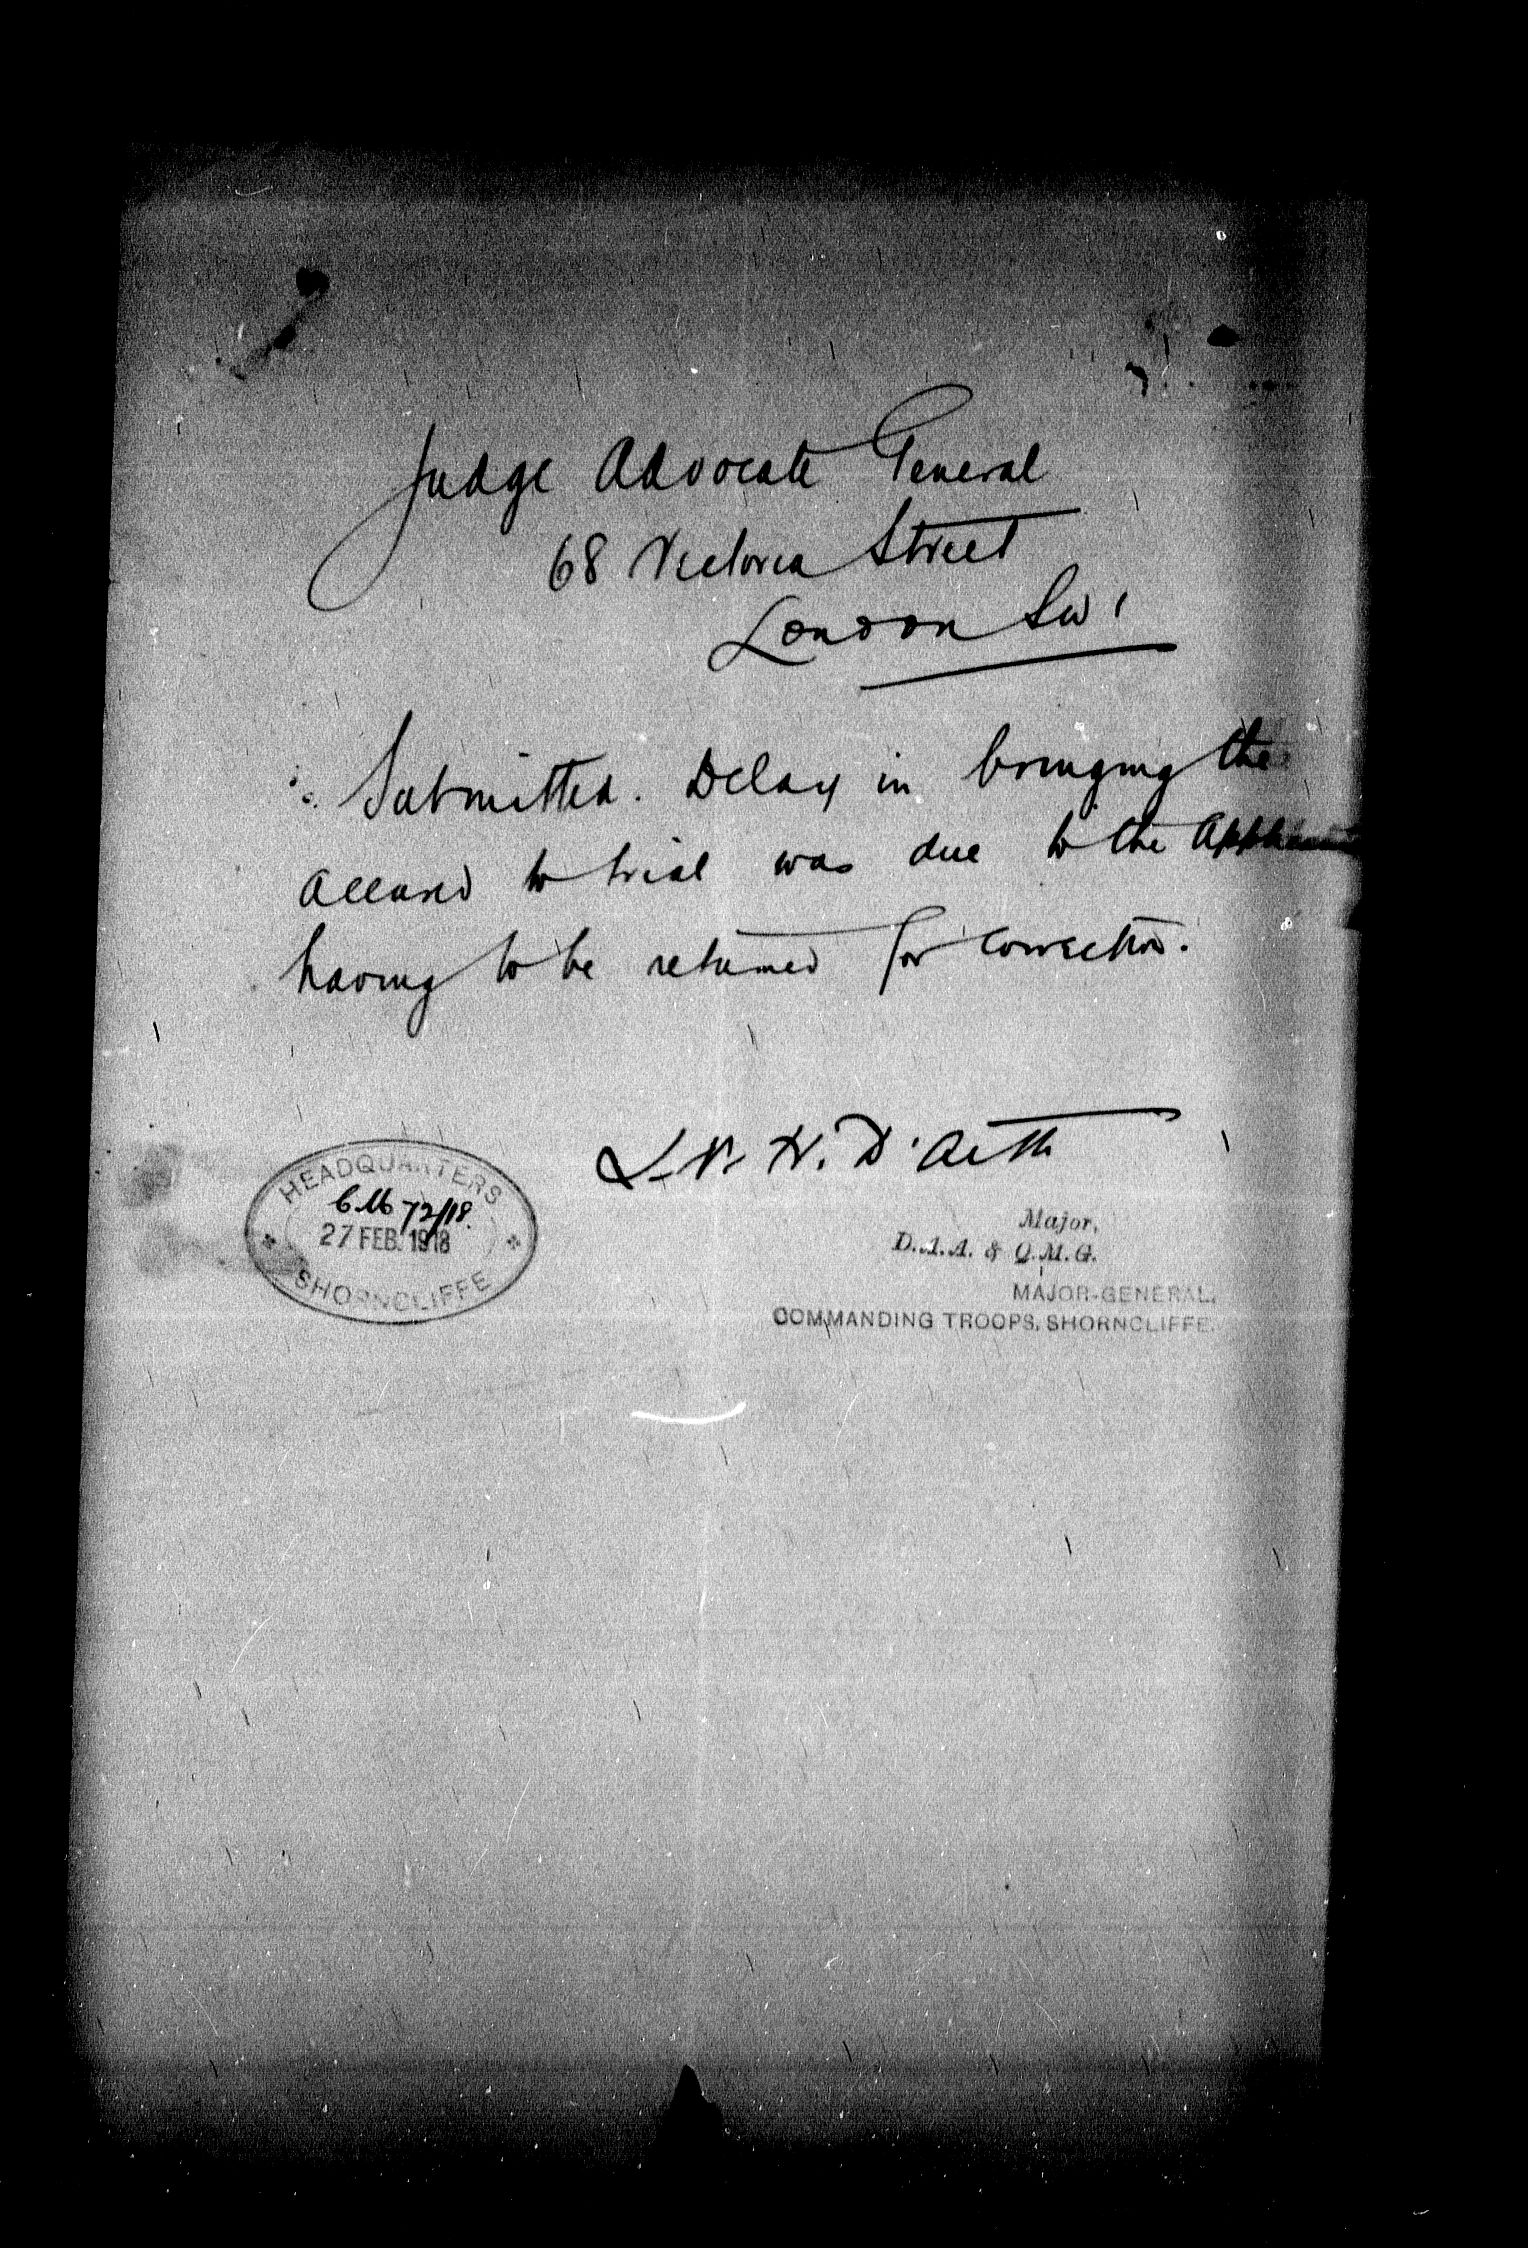 Judge Advocate General
68 Victoria Street
London SW 1
Submitted. Delay in bringing the
accused to trial was due to the
having to be returned for correction.
D'Aeth
HEADQUARTERS
C.M. 72/18.
27 FEB. 1918
SHORNCLIFFE
Major,
D.A.A. & Q.M.G.
MAJOR-GENERAL,
COMMANDING TROOPS, SHORNCLIFFE.